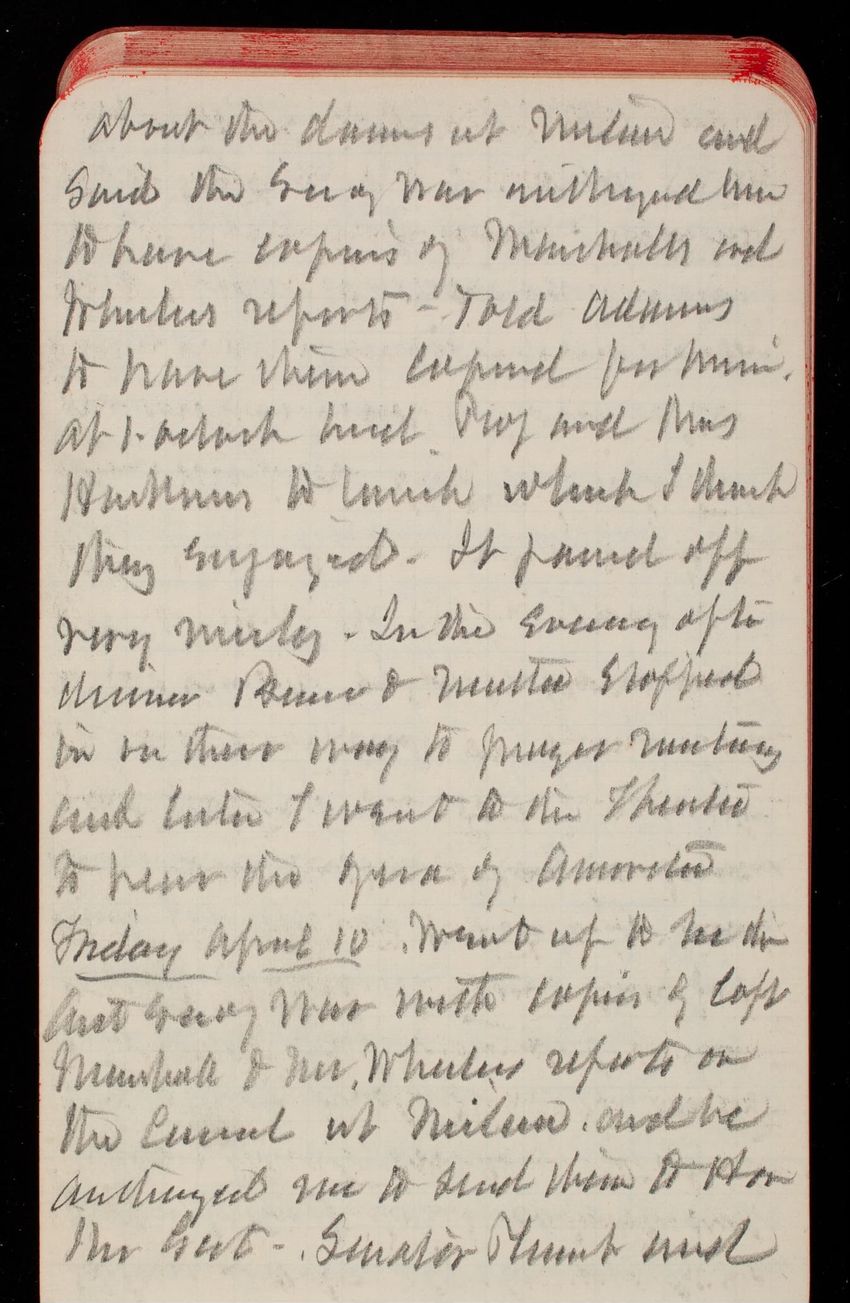 about the dams at Milan and
Said the Secy War authorized him
to have copies of Marshalls and
Wheelers reports - Told Adams
to have them copied for him.
At 1. oclock had Prof and Mrs
Harkness to lunch which I think
they enjoyed. It passed off
very nicely. In the Evening after
dinner & Stopped
in on their way to prayer meeting
and later I went to the Theatre
to hear the opera of Amorita
Friday April 10. Went up to see the
Asst Secy War with copies of Capt
Marshall & Mr. Wheelers reports on
the Canal at Milan. and he
authorized me to send them to Hon
Mr Gest -. Senator Plumb and